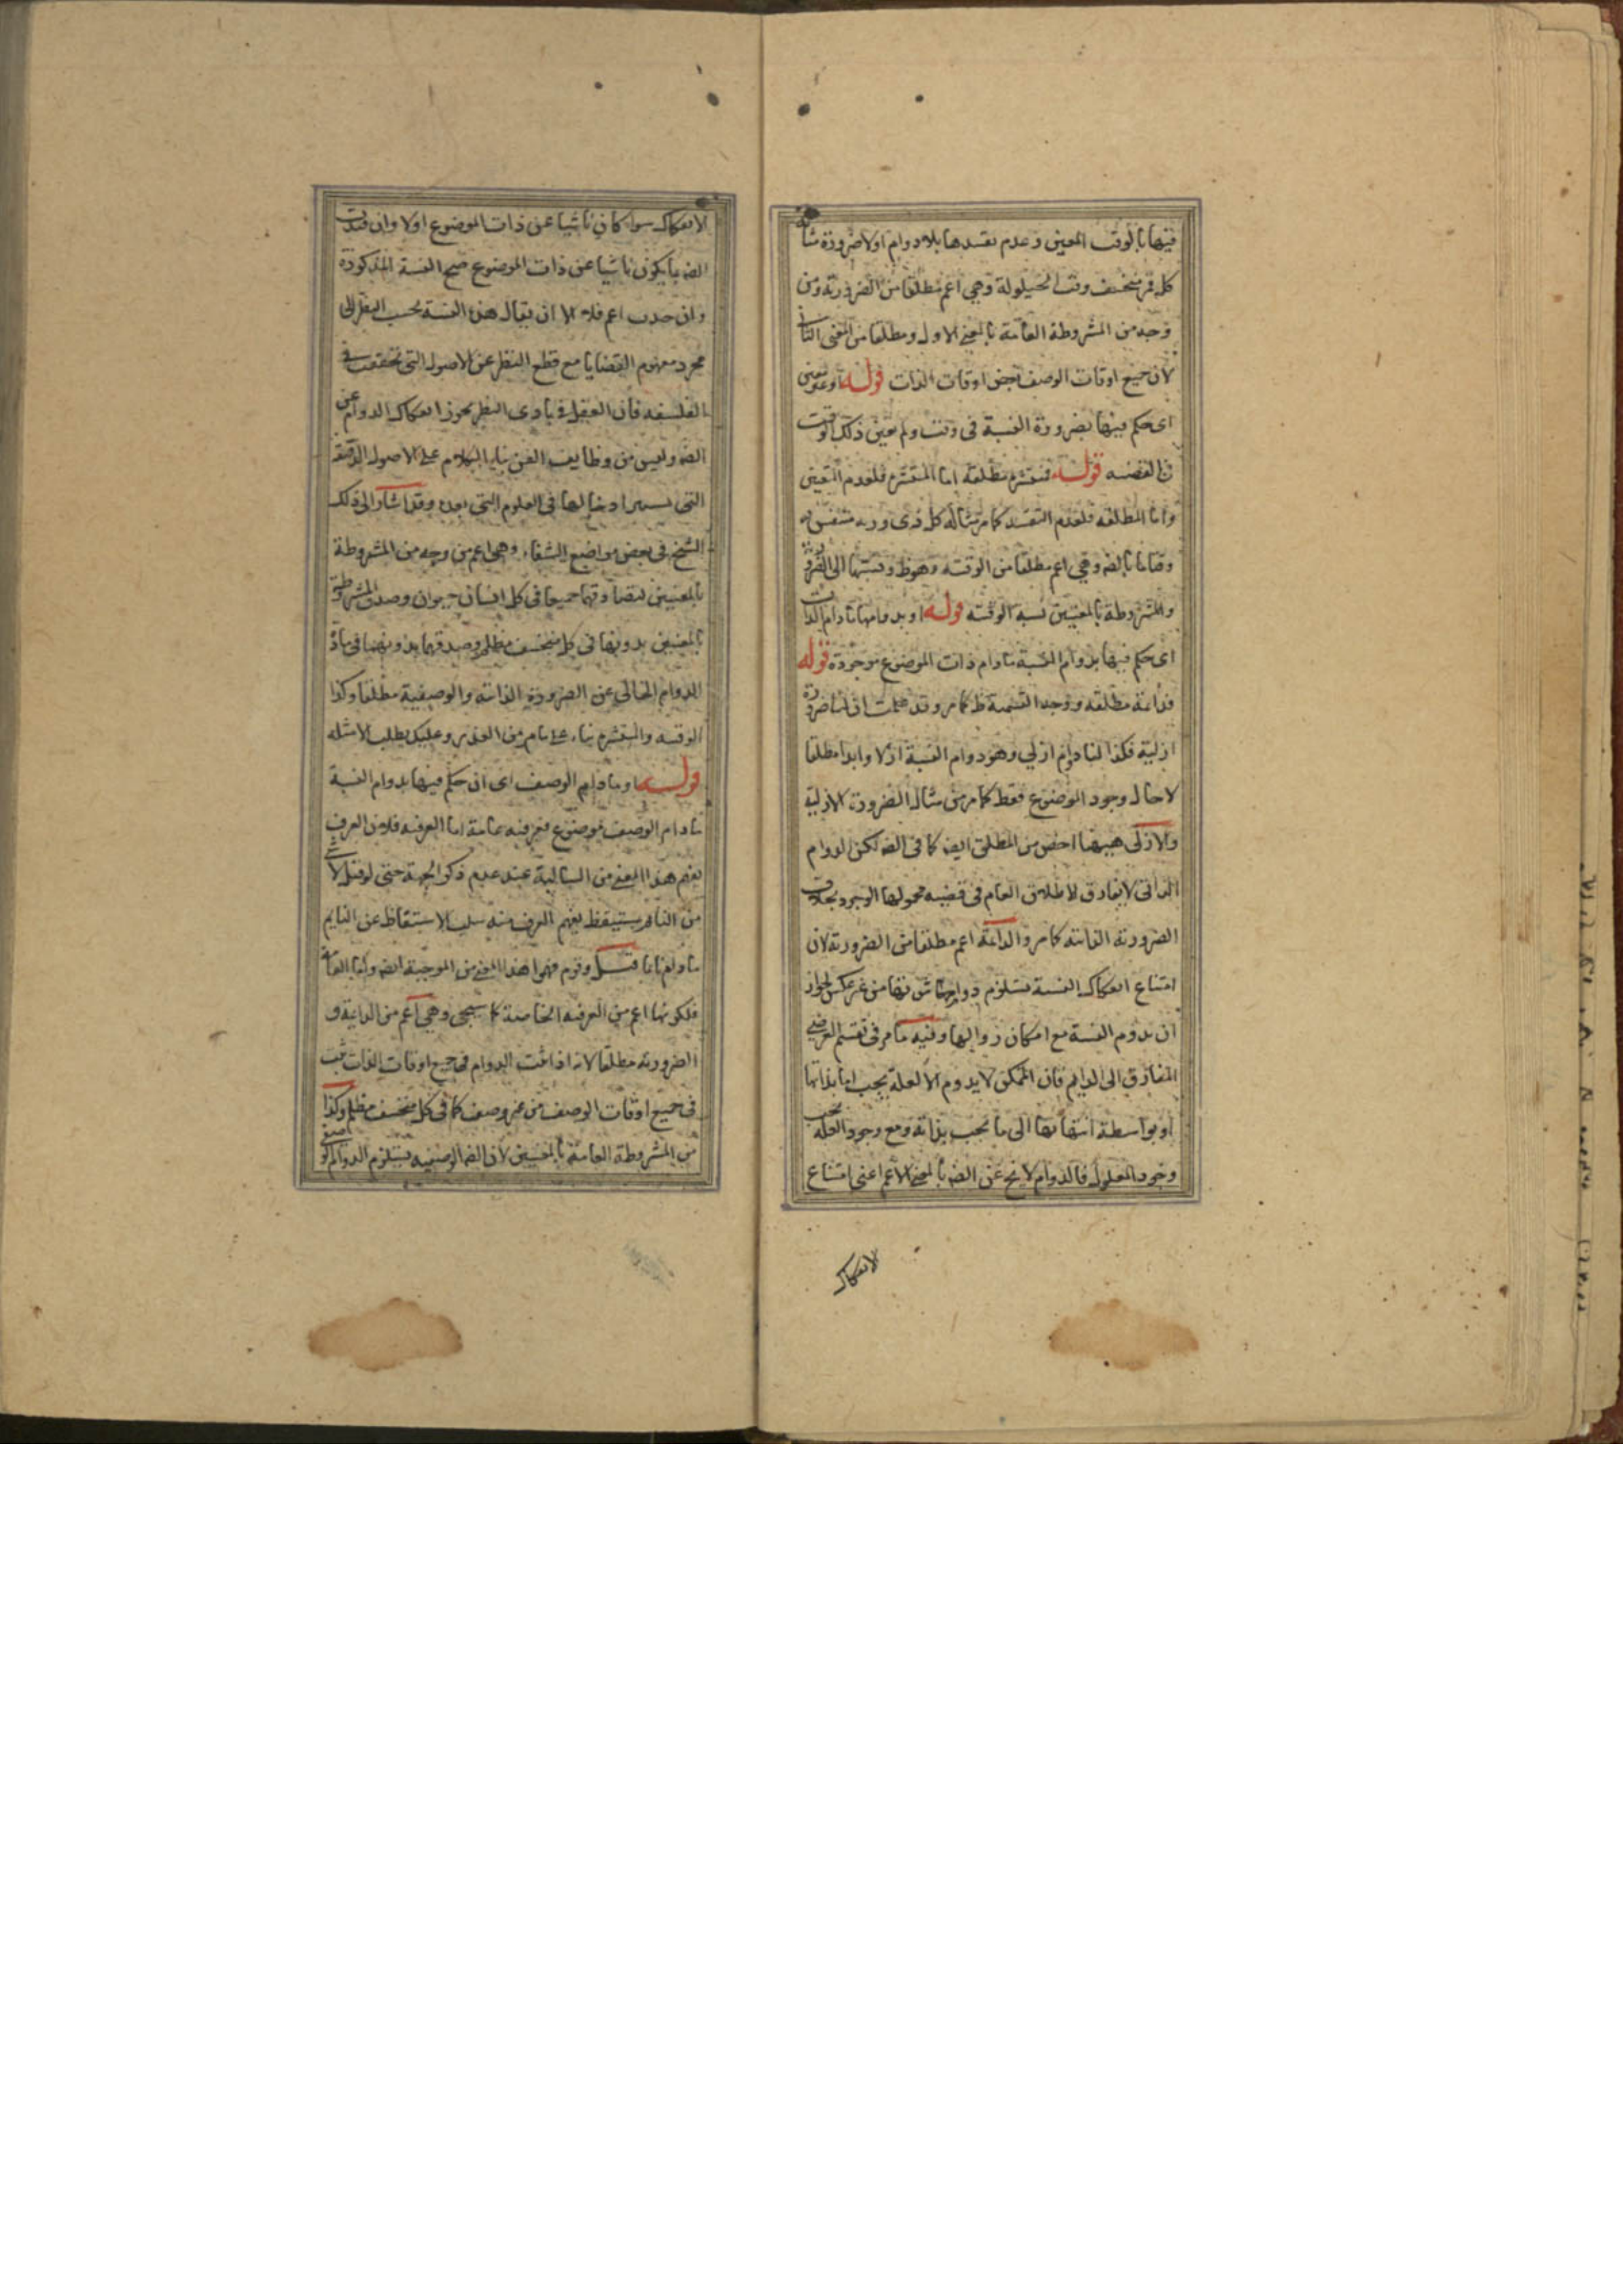 فيها بالوقت المعين وعدم تقييدها باللادوام او لا ضرورة مثاله
كل قمر منخسف وقت الحيلولة وهي اعم مطلقا من الضرورية ومن
وجه من المشروطة العامة بالمعنى الاول ومطلقا من المعنى الثانى
لان جميع اوقات الوصف بعض اوقات الذات قوله او غير معين
اى حكم فيها بضرورة النسبة فى وقت ولم يعين ذلك الوقت
فى القضيه قوله فمنتشره مطلقة اما المنتشره فلعدم التعين
واما المطلقه فلعدم التقييد كما مر مثاله كل ذى ريه متنفس
وقتا ما بالضه وهي اعم مطلقا من الوقتيه وهو ظ ونسبتها الى الضرورية
والمشروطة بالمعنيين نسبة الوقتيه قوله او بدوامها مادام الذات
اى حكم فيها بدوام النسبة مادام ذات الموضوع موجودة قوله
فدائمة مطلقه ووجه التسمية ظ كما مر وقد علمت ان لنا ضرورة
ازلية فكذا لنا دوام ازلي وهو دوام النسبة ازلا وابدا مطلقا
لا حال وجود الموضوع فقط كما مر من مثال الضرورة الازلية
والازلى ههنا اخص من المطلق ايضه كما فى الضه لكن الدوام
الذاتى لا يفارق الاطلاق العام فى قضيه محمولها الوجود بخلاف
الضرورية الذاتيه كما مر والدائمة اعم مطلقا من الضرورية لان
امتناع انفكاك النسبة يستلزم دوامها من غير عكس لجواز
ان يدوم النسبة مع امكان زوالها وفيه ما مر فى تقسيم العرضى
المفارق الى الدايم فان الممكن لا يدوم الا لعلة يجب اما بذاتها
او بواسطة انتهائها الى ما يجب بذاته ومع وجود العله يجب
وجود المعلول فالدوام لا يخ عن الضه بالمعنى الاعم اعنى امتناع
الانفكاك
الانفكاك سواء كان ناشيا عن ذات الموضوع اولا وان قيدت
الضه بما يكون ناشيا عن ذات الموضوع صح النسبة المذكورة
وان اعم فلا الا ان يقال هذه النسبة بحسب النظر الى
مجرد مفهوم القضايا مع قطع النظر عن الاصول التى تحققت فى
الفلسفه فان العقل فى بادى النظر يجوز انفكاك الدوام عن
الضه وليس من وظايف الفن بناء الكلام على الاصول الدقيقه
التى فى العلوم التى بعده وقد اشار الى ذلك
الشيخ فى بعض مواضع الشفاء وهي اعم من وجه من المشروطة
بالمعنيين لتصادقهما جميعا فى كل انسان حيوان وصدق المشروطة
بالمعنيين بدونها فى كل منخسف مظلم وصدقها بدونهما فى مادة
الدوام الخالى عن الضرورة الذاتيه والوصفية مطلقا وكذا
الوقتيه والمنتشره بناء على ما مر من العذر وعليك بطلب الامثله
قوله او مادام الوصف اى ان حكم فيها بدوام النسبة
مادام الوصف موضوع فعرفيه عامة اما العرفيه فلان العرف
يفهم هذا المعنى من السالبة عند عدم ذكر الجهة حتى لو قيل لا شئ
من النائم بمستيقظ يفهم العرف منه سلب الاستيقاظ عن النايم
مادام نايما قيل وقوم فهموا هذا المعنى من الموجبة ايضه واما العامة
فلكونها اعم من العرفيه الخاصة كما سيجئ وهي اعم من الدايمة و
الضرورية مطلقا لانه اذا ثبت الدوام فى جميع اوقات الذات ثبت
فى جميع اوقات الوصف من غير كما فى كل منخسف مظلم وكذا
من المشروطة العامة بالمعنيين لان الضه الوصفيه يستلزم الدوام الوصفى